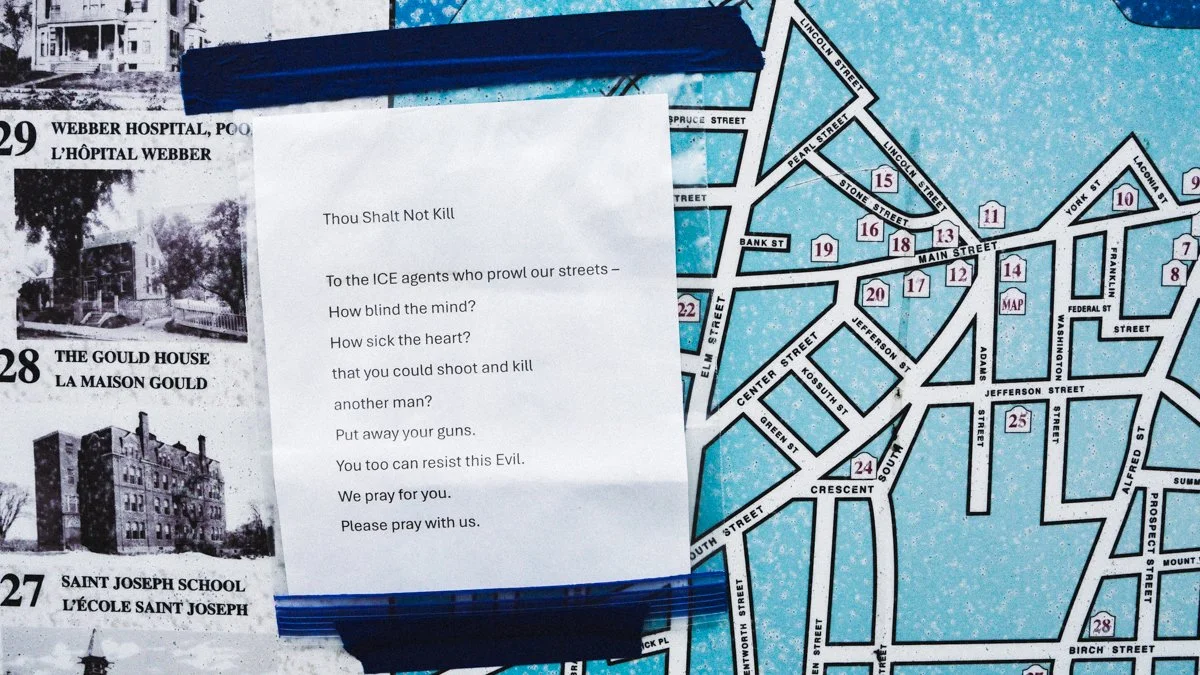 29
WEBBER HOSPITAL,
L'HÔPITAL WEBBER
28
THE GOULD HOUSE
LA MAISON GOULD
27
SAINT JOSEPH SCHOOL
L'ÉCOLE SAINT JOSEPH
Thou Shalt Not Kill
To the ICE agents who prowl our streets –
How blind the mind?
How sick the heart?
that you could shoot and kill
another man?
Put away your guns.
You too can resist this Evil.
We pray for you.
Please pray with us.
LINCOLN STREET
SPRUCE STREET
PEARL STREET
LINCOLN STREET
STREET
STONE STREET
BANK ST
MAIN STREET
YORK ST
LACONIA ST
15
16
18
13
11
10
9
19
20
17
12
14
MAP
7
8
22
ELM STREET
FRANKLIN
FEDERAL ST
STREET
JEFFERSON ST
CENTER STREET
KOSSUTH ST
GREEN ST
ADAMS
STREET
WASHINGTON
STREET
JEFFERSON STREET
25
24
SOUTH
CRESCENT
ALFRED ST
PROSPECT STREET
28
BIRCH STREET
STREET